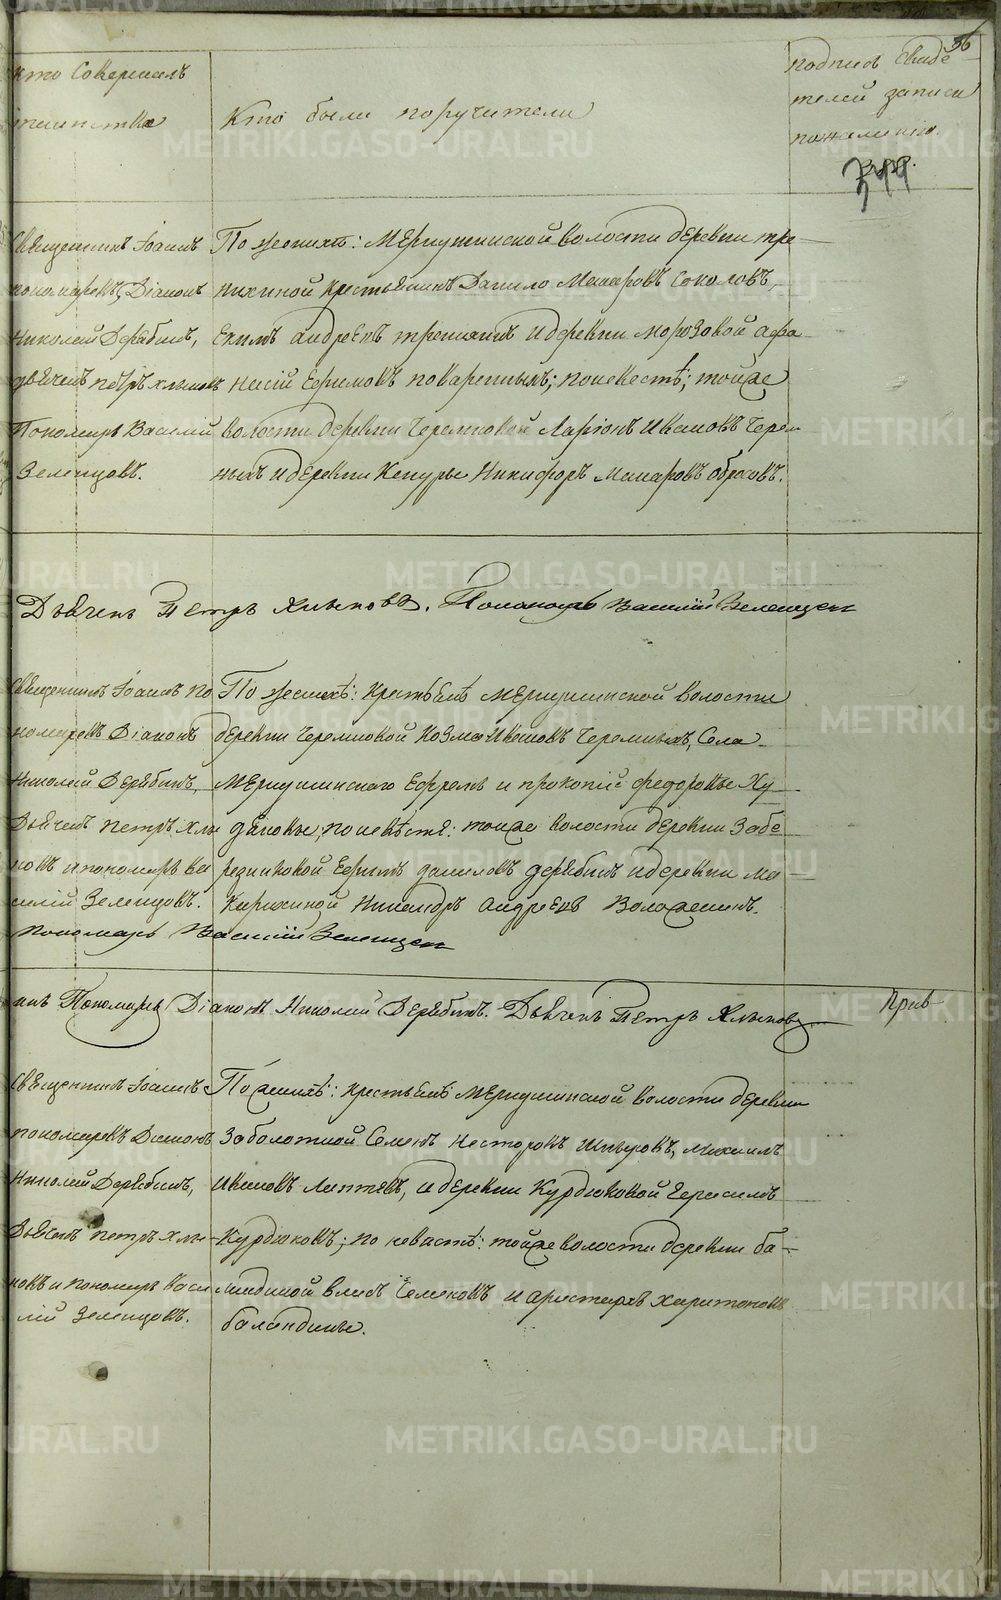 36
кто Совершалъ
таинство
Кто были поручители
подпись свиде-
телей записи
по желанію.
344.
Священникъ Іоаннъ
пономаревъ, Діаконъ
Николай Дерябинъ,
дьячекъ петръ хлыновъ
Пономарь Василій
Зеленцовъ.
По женихѣ: Меркушинской волости деревни тре-
нихиной крестьянинъ Данило Макаровъ Соколовъ,
Екимъ андреевъ и деревни морозовой афа-
насій Ефимовъ; по невестѣ; тойже
волости деревни Черемновой Ларіонъ Ивановъ Черем-
ныхъ и деревни Кепуры Никифоръ Макаровъ
Дьячекъ Петръ Хлыновъ. Пономарь Василій Зеленцовъ
Священникъ Іоаннъ по
номаревъ Діаконъ
Николай Дерябинъ,
Дьячекъ петръ хлы
новъ и пономарь ва
силій Зеленцовъ.
По женихѣ: крестьянѣ Меркушинской волости
деревни Черемновой Козма Ивановъ Черемныхъ, Села
Меркушинскаго Ефремъ и прокопій федоровы Ху
дяковы, по невѣстѣ: тойже волости деревни Забе
резниковой Ефимъ даниловъ дерябинъ и деревни ма
Никандръ андреевъ
Пономарь Василій Зеленцовъ
Пономаревъ Діаконъ Николай Дерябинъ. Дьячекъ Петръ Хлыновъ
Прив
Священникъ Іоаннъ
пономаревъ Діаконъ
Николай Дерябинъ,
Дьячекъ петръ хлы-
новъ и пономарь Васи
лій Зеленцовъ.
По женихѣ: крестьянѣ Меркушинской волости деревни
Заболотной Семенъ Несторовъ михаилъ
Ивановъ Лаптевъ, и деревни Курдюковой Герасимъ
Курдюковъ; по невестѣ: тойже волости деревни ба-
ландиной Семеновъ и аристархъ харитоновъ
баландины.
METRIKI.GASO-URAL.RU